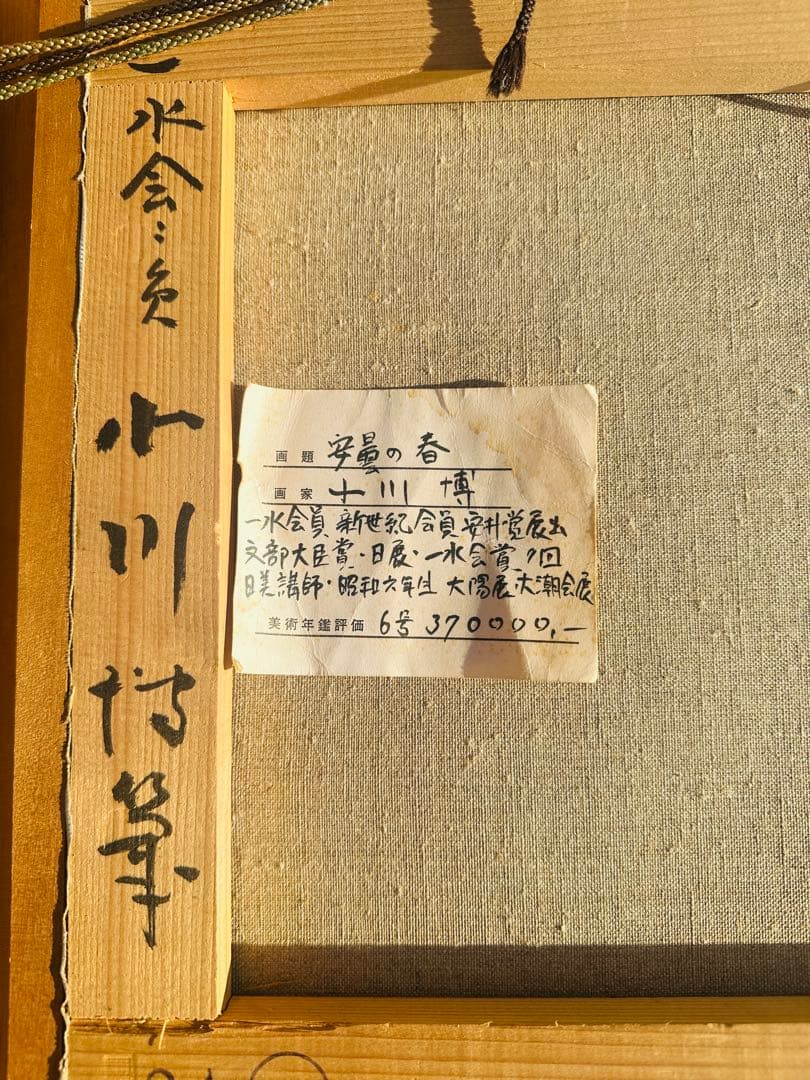 一水会〻員 小川博筆
画題 安曇の春
画家 小川 博
一水会員 新世紀会員 安井賞展出
文部大臣賞・日展・一水会賞 回
日美講師・昭和六年生 大陽展 大潮会展
美術年鑑評価 6号 370000,—